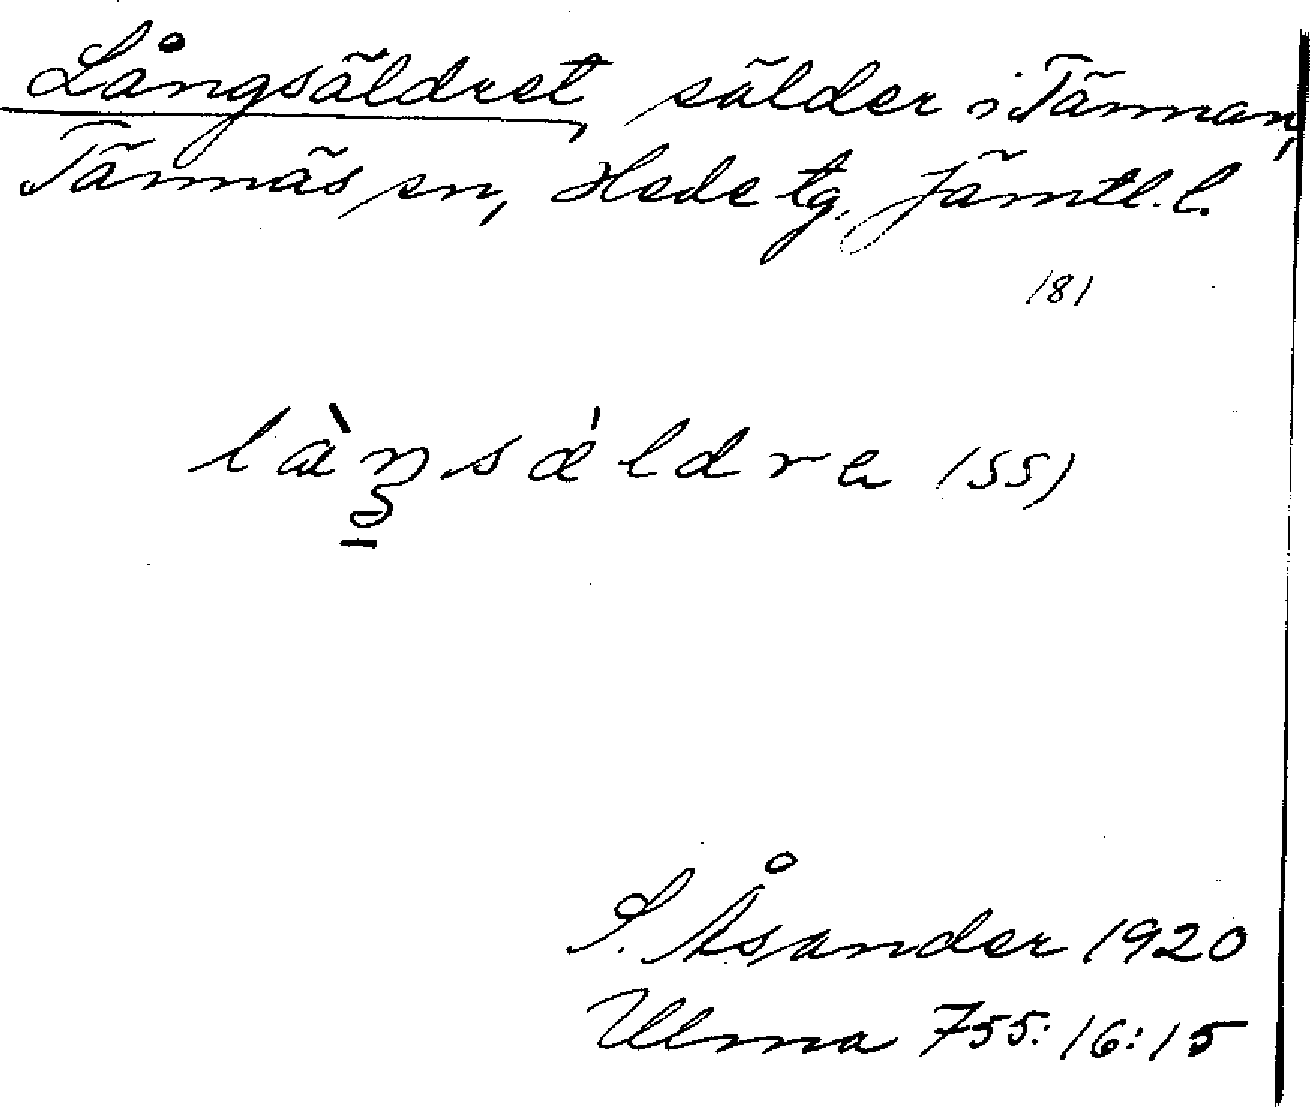 Långsäldret, sälder i Tännan,
Tännäs sn, Hede tg, Jämtl. l.
181
làŋsǽldra (55)
S. Åsander 1920
Ulma 755:16:15